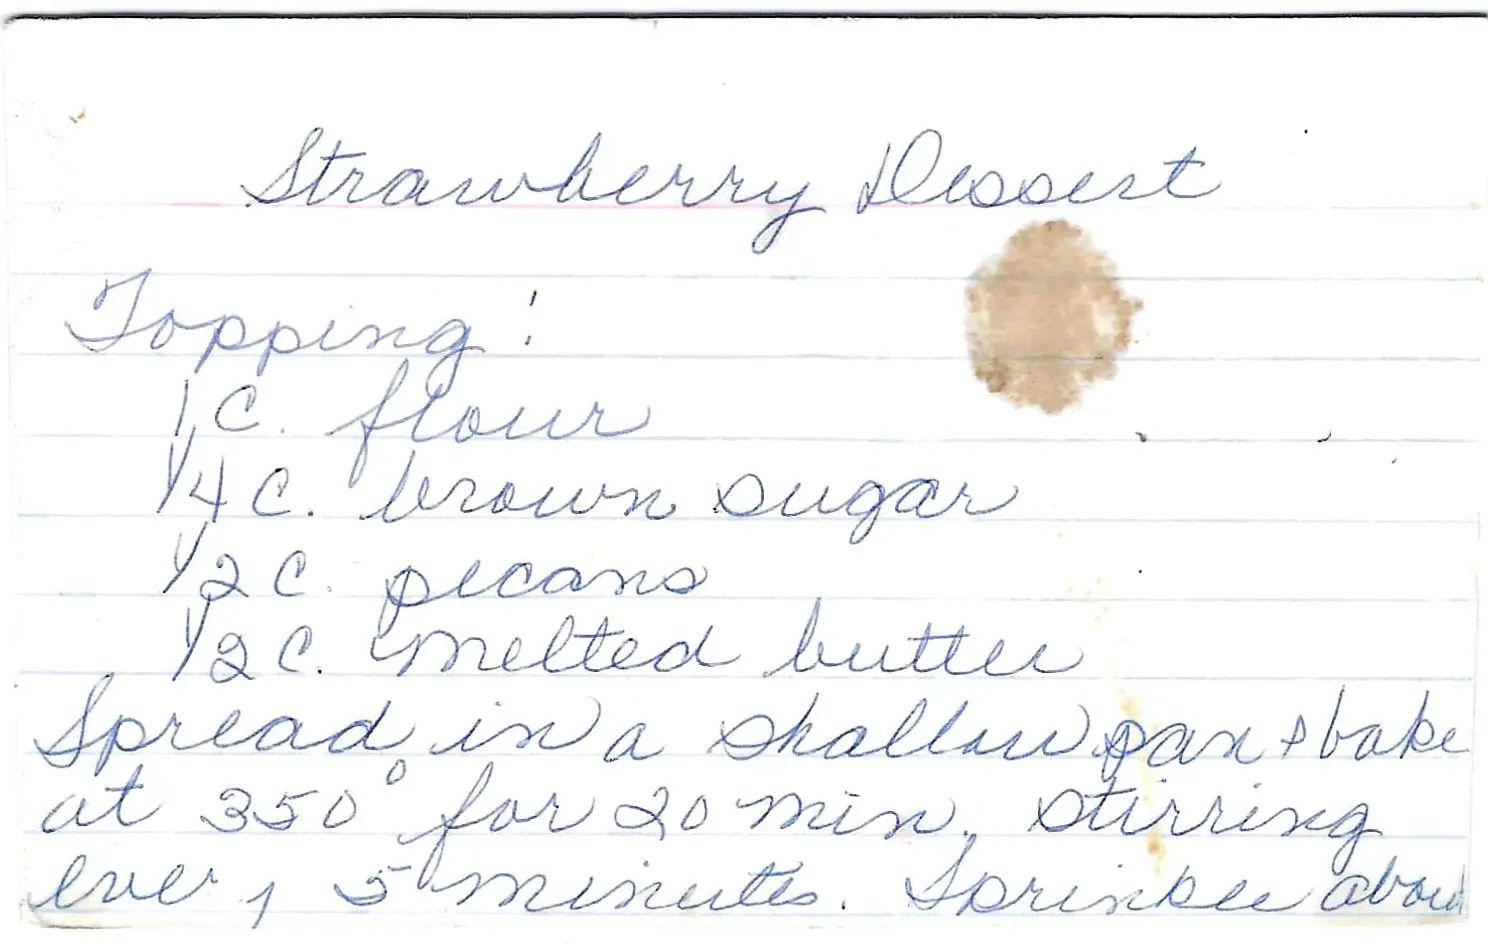 Strawberry Dessert
Topping:
1 C. flour
1/4 C. brown sugar
1/2 C. pecans
1/2 C. melted butter
Spread in a shallow pan & bake
at 350° for 20 min. stirring
every 5 minutes. Sprinkle about